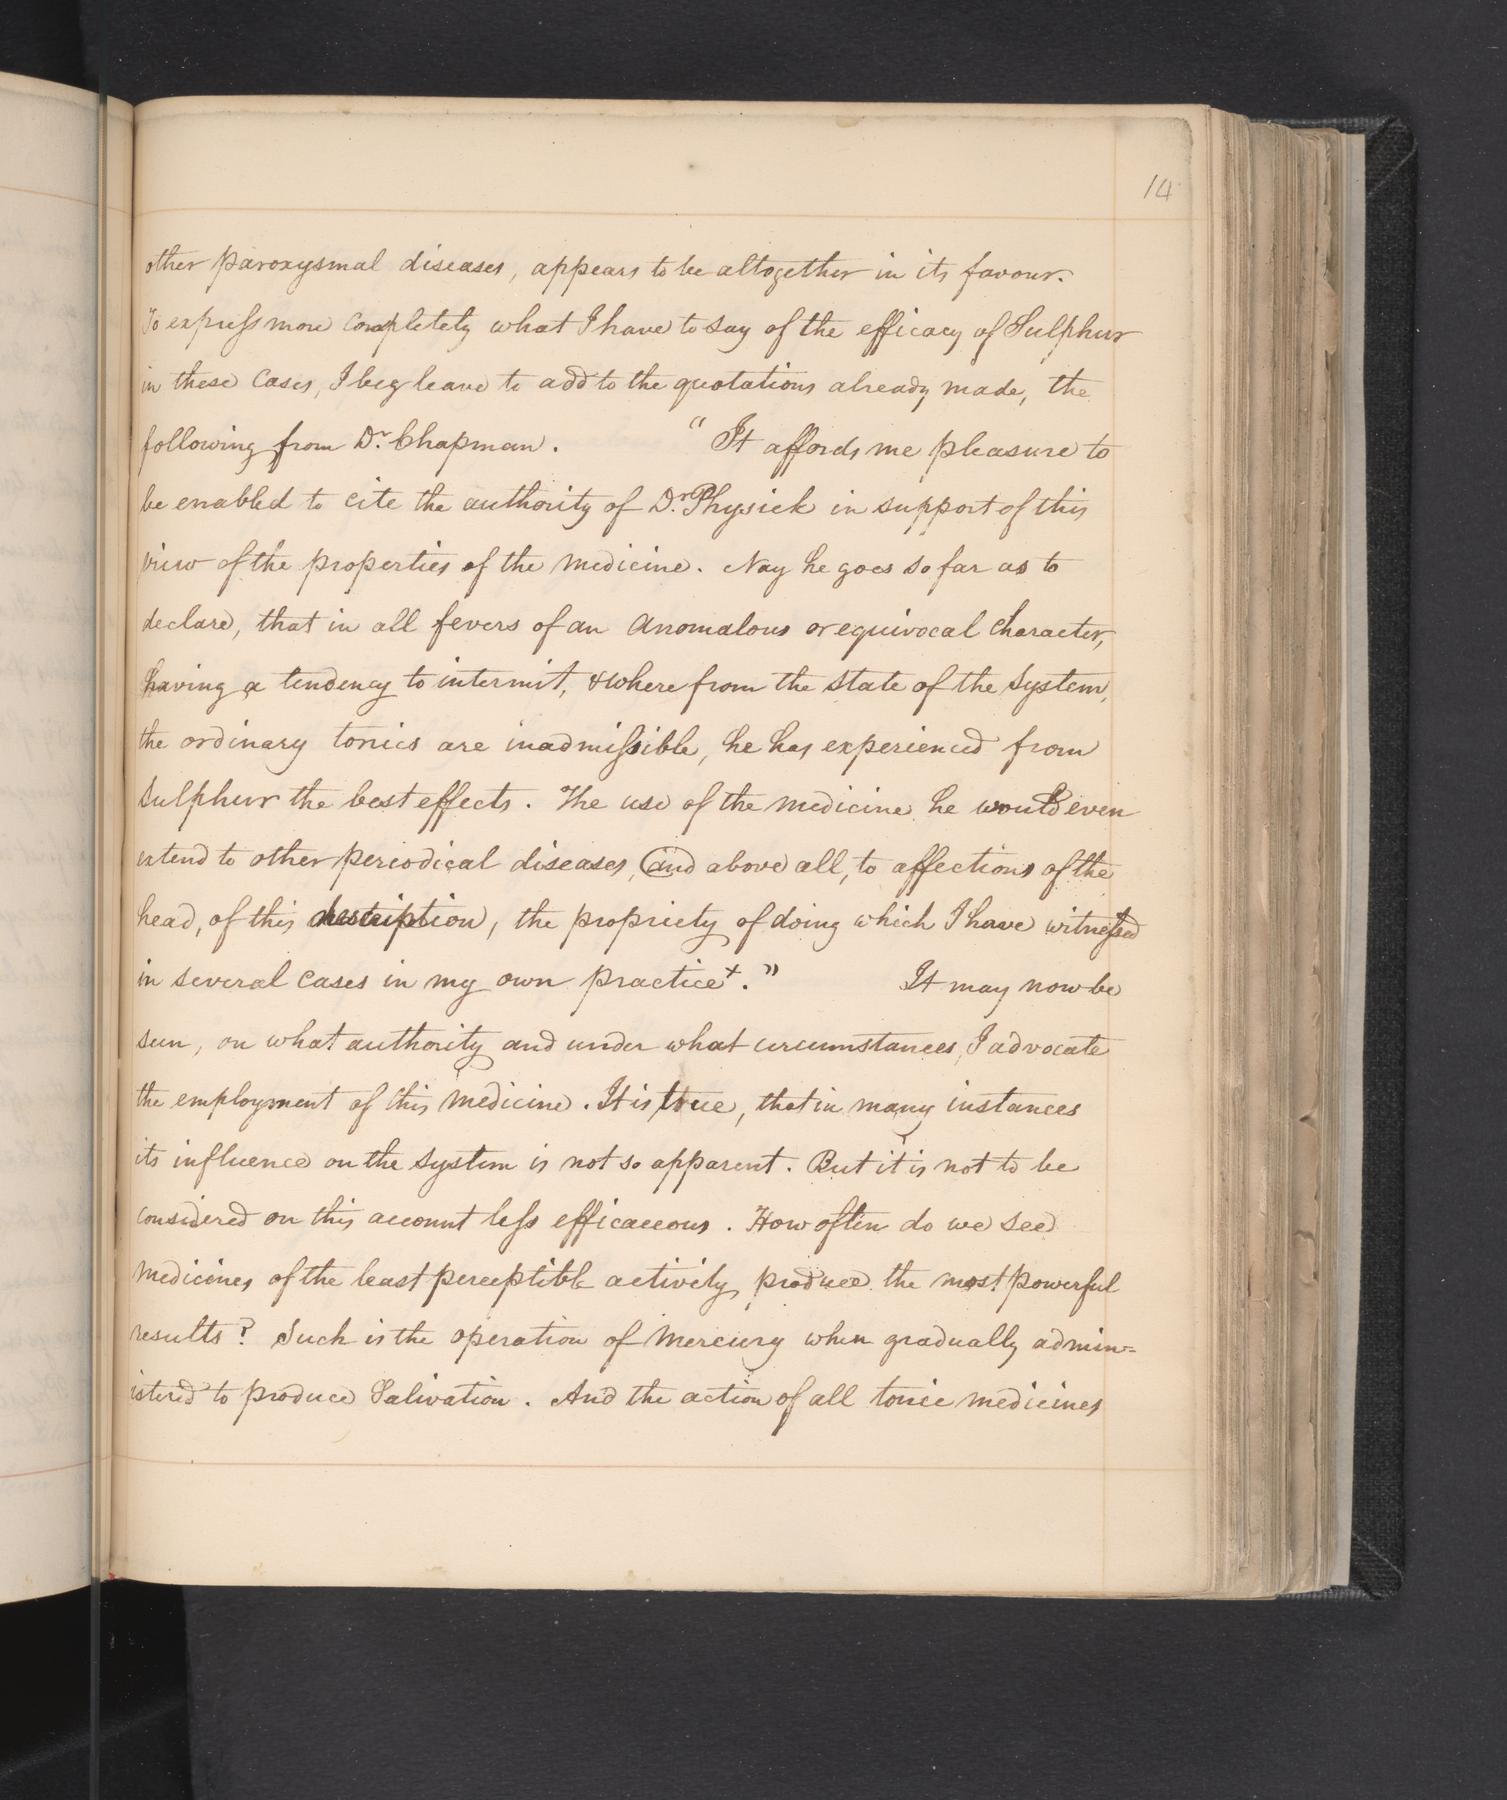 14
other paroxysmal diseases, appears to be altogether in its favour.
To express more completely what I have to say of the efficacy of Sulphur
in these cases, I beg leave to add to the quotations already made, the
following from Dr. Chapman. "It affords me pleasure to
be enabled to cite the authority of Dr. Physick in support of this
view of the properties of the medicine. Nay he goes so far as to
declare, that in all fevers of an anomalous or equivocal character,
having a tendency to intermit, & where from the state of the system,
the ordinary tonics are inadmissible, he has experienced from
Sulphur the best effects. The use of the medicine he would even
extend to other periodical diseases, and above all, to affections of the
head, of this description, the propriety of doing which I have witnessed
in several cases in my own practice+." It may now be
seen, on what authority and under what circumstances, I advocate
the employment of this medicine. It is true, that in many instances
its influence on the system is not so apparent. But it is not to be
considered on this account less efficaceous. How often do we see
medicines of the least perceptible activity, produce the most powerful
results? Such is the operation of Mercury when gradually admin-
istered to produce Salivation. And the action of all tonic medicines